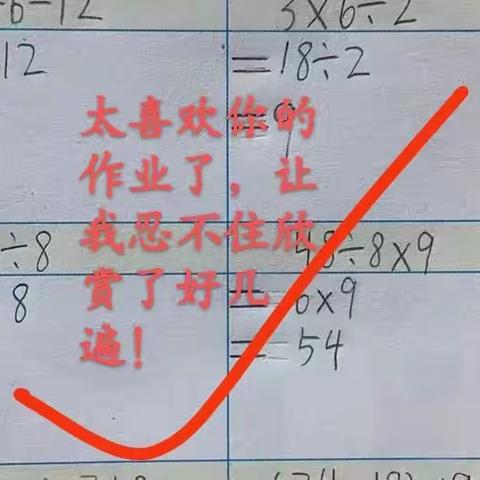 -6-12
3×6÷2
12
=18÷2
=9
太喜欢你的
作业了，让
我忍不住欣
赏了好几
遍！
÷8
48÷8×9
8
=6×9
=54